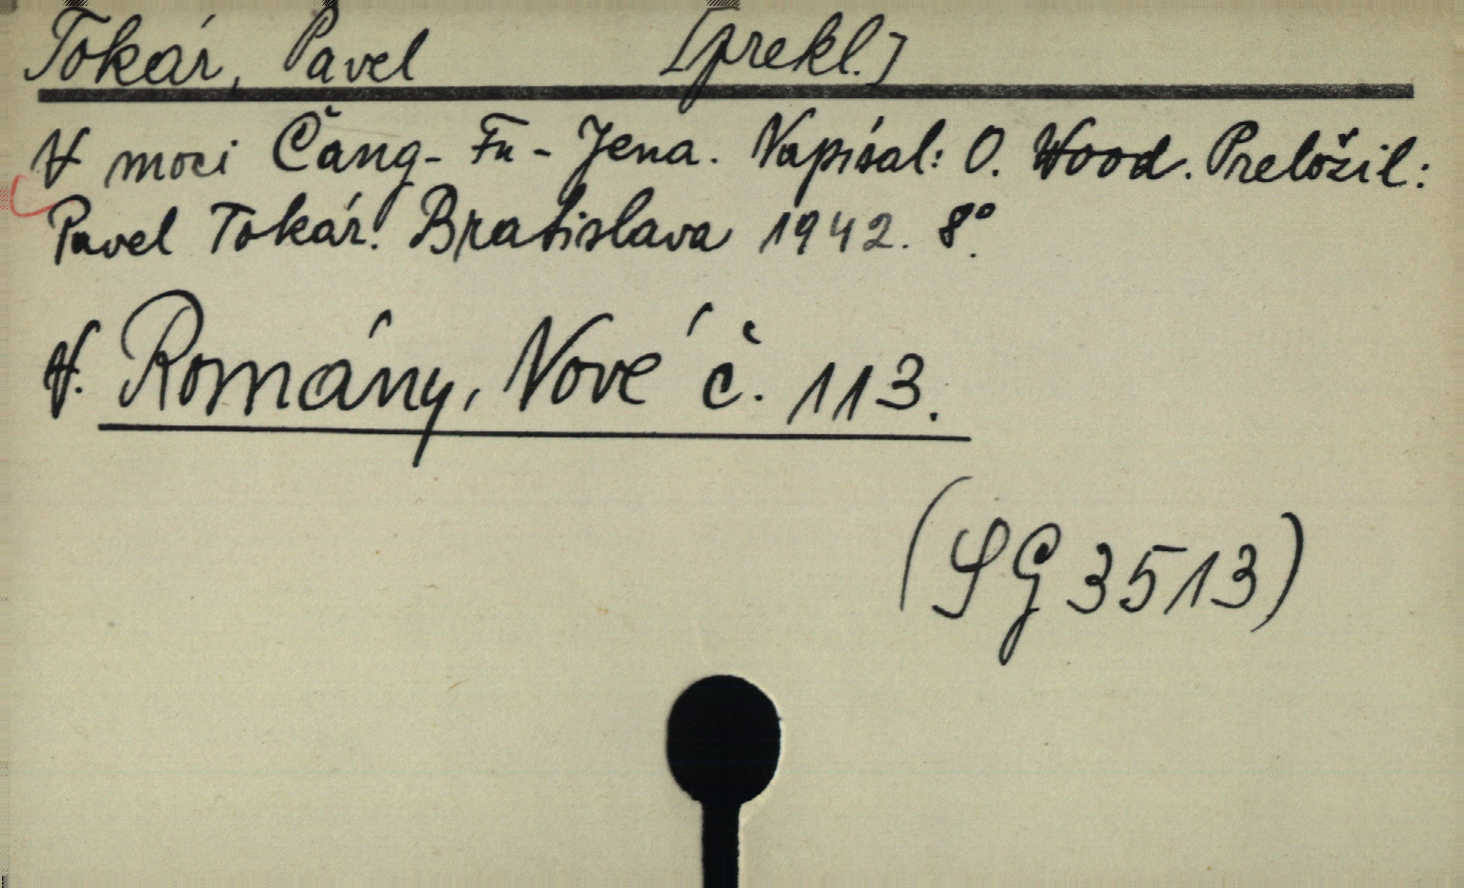 Tokár, Pavel [prekl.]
V moci Čang-Fu-Jena. Napísal: O. Wood. Preložil:
Pavel Tokár. Bratislava 1942. 8°.
V. Romány, Nové č. 113.
(SG 3513)